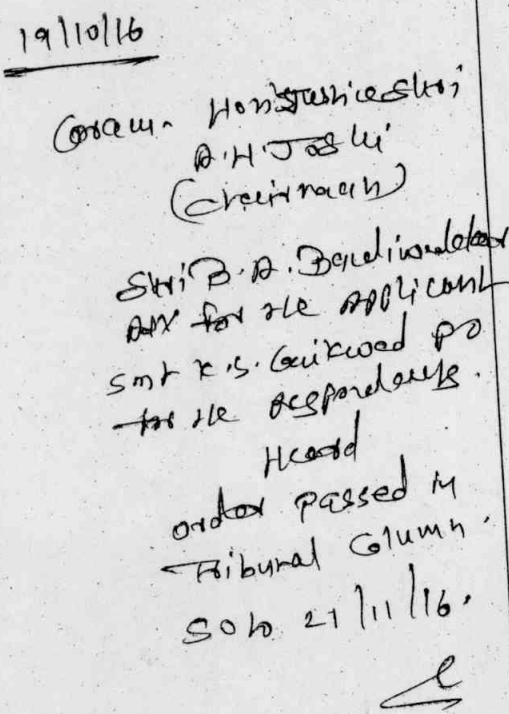 19/10/16
Coram. Hon'Justice Shri
A.H. Joshi
(Chairman)
Shri B.A. Bandiwadekar
Adv for the Applicant
Smt K.S. Gaikwad PO
for the respondents.
Heard
order passed in
Tribunal Column.
S.O. to 21/11/16.